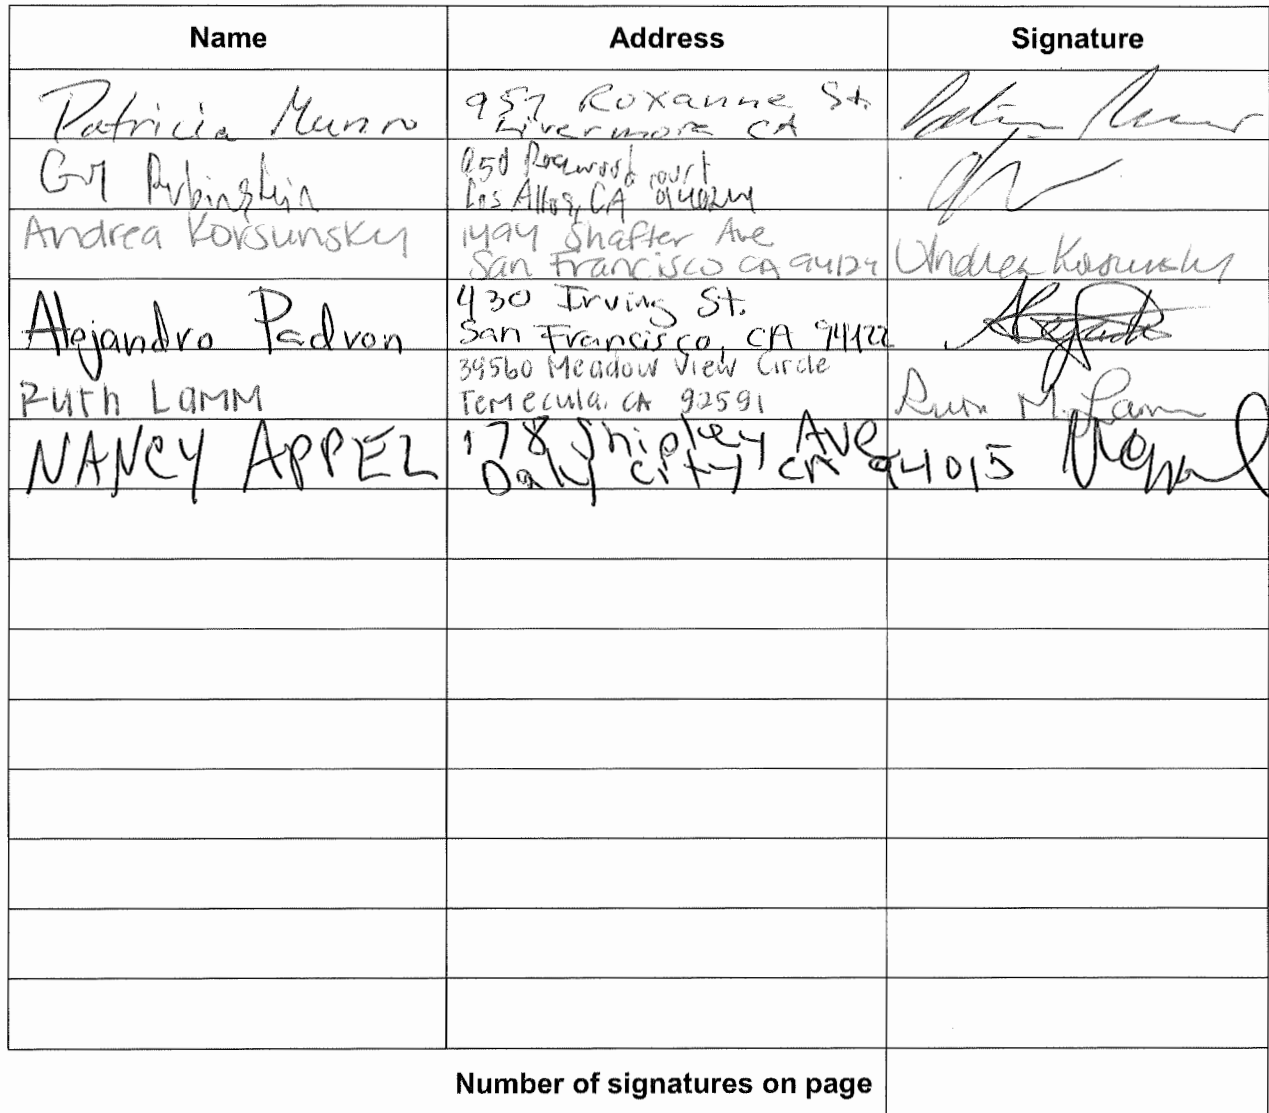 Name Address Signature
Patricia Munro 957 Roxanne St.
Livermore CA
Rubinstein 950 court
Los Altos, CA 94024
Andrea Korsunsky 1494 Shafter Ave
San Francisco CA 94124 Andrea Korsunsky
Alejandro Padron 430 Irving St.
San Francisco, CA 94122
Ruth Lamm 39560 Meadow View Circle
Temecula, CA 92591 Ruth M. Lamm
NANCY APPEL 178 Shipley Ave
Daly City CA 94015
Number of signatures on page